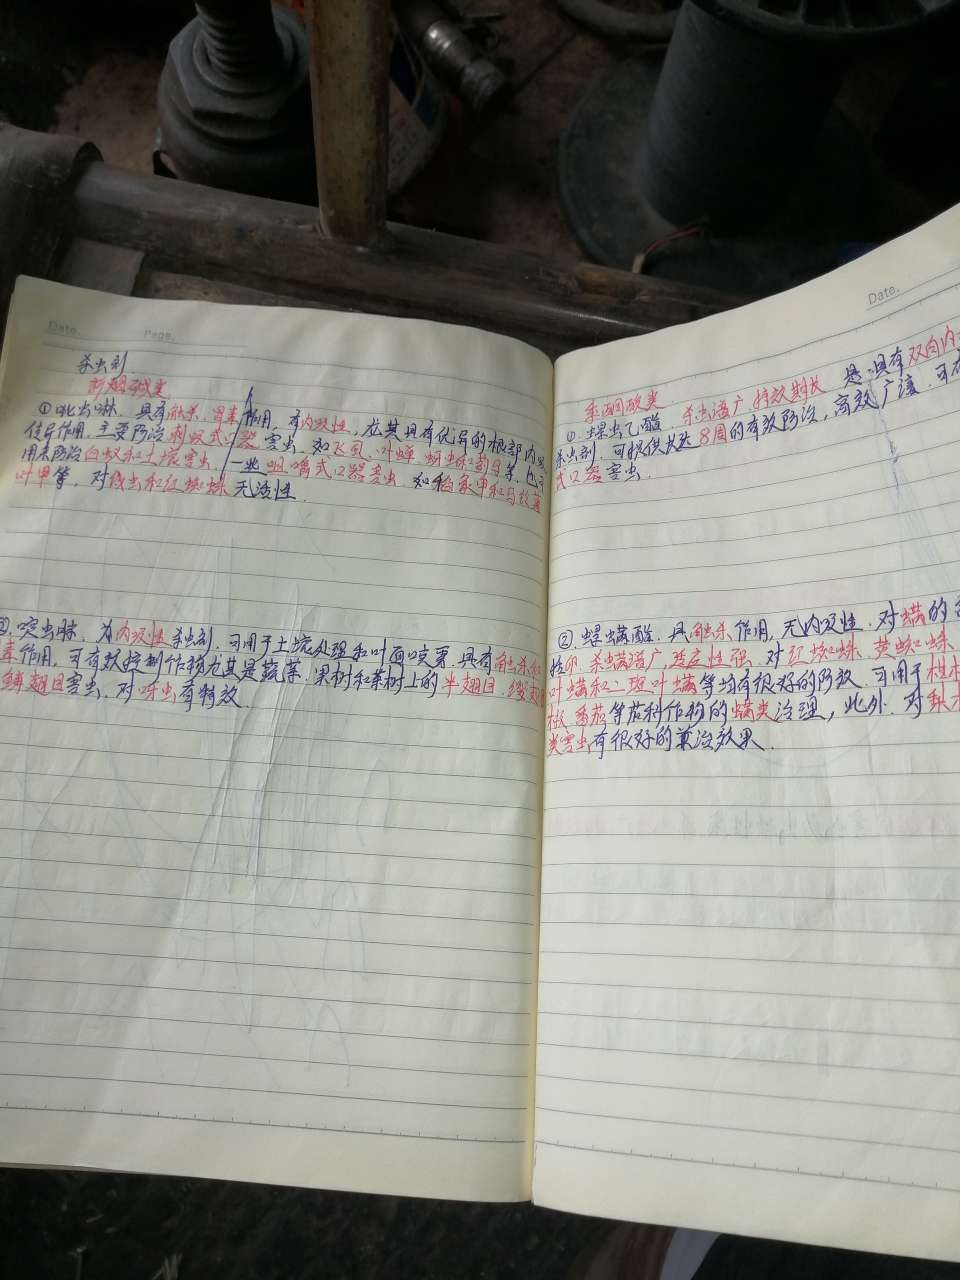 Date.
Page.
杀虫剂
新烟碱类
①吡虫啉.具有触杀.胃毒作用,有内吸性,尤其具有优异的根部内吸
传导作用.主要防治刺吸式口器害虫.如飞虱.叶蝉.蚜虫和蓟马等.也可
用来防治白蚁和土壤害虫.一些咀嚼式口器害虫.如稻象甲和马铃薯
叶甲等,对线虫和红蜘蛛无活性.
②.啶虫脒.为内吸性杀虫剂.可用于土壤处理和叶面喷雾.具有触杀和
毒作用,可有效控制作物尤其是蔬菜.果树和茶树上的半翅目.缨翅目
鳞翅目害虫,对蚜虫有特效.
Date.
季酮酸类
①.螺虫乙酯.杀虫谱广 持效期长 是具有双向内
杀虫剂.可提供长达8周的有效防治,高效广谱.可有
式口器害虫.
②.螺螨酯.具触杀作用,无内吸性.对螨的各
括卵.杀螨谱广,适应性强.对红蜘蛛.黄蜘蛛.
叶螨和二斑叶螨等均有很好的防效.可用于柑橘
椒番茄等茄科作物的螨类治理,此外.对梨木
类害虫有很好的兼治效果.